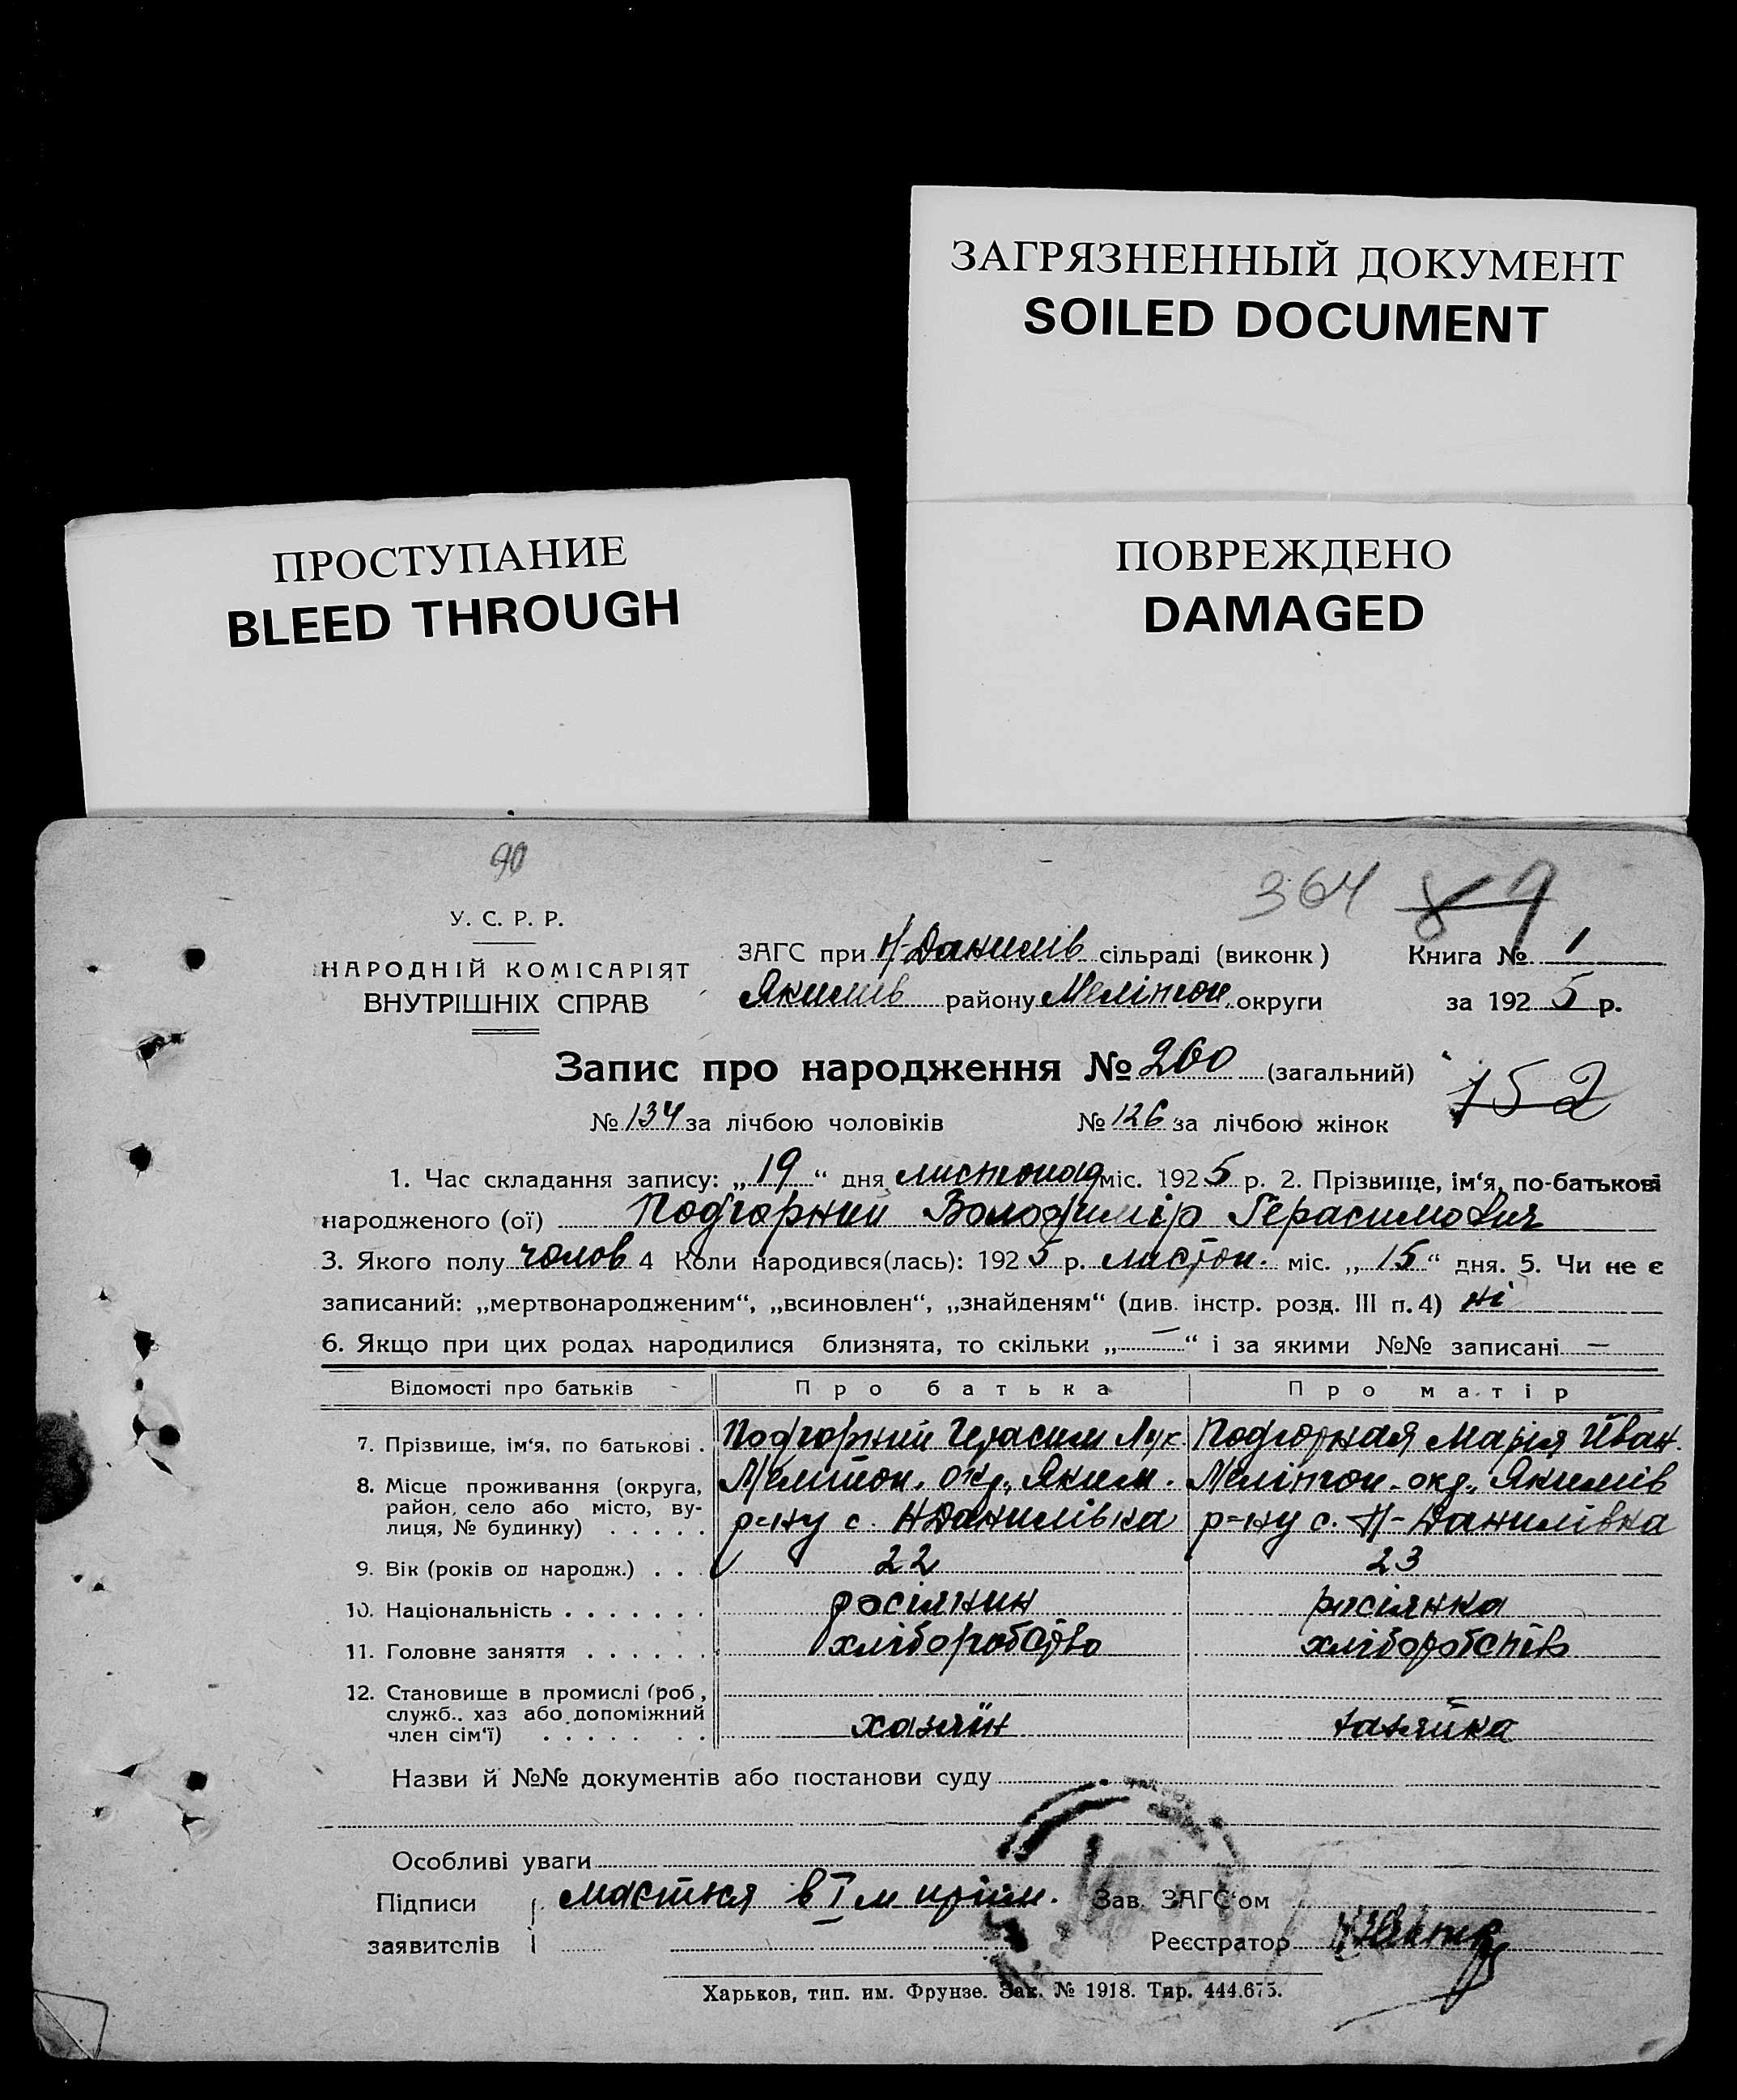 ЗАГРЯЗНЕННЫЙ ДОКУМЕНТ
SOILED DOCUMENT
ПРОСТУПАНИЕ
BLEED THROUGH
ПОВРЕЖДЕНО
DAMAGED
90
364 89
У. С. Р. Р.
НАРОДНІЙ КОМІСАРІЯТ
ВНУТРІШНІХ СПРАВ
ЗАГС при Н-Данилів сільраді (виконк) Книга № 1
Якимів району Мелітоп. округи за 1925 р.
Запис про народження № 260 (загальний)
152
№ 134 за лічбою чоловіків № 126 за лічбою жінок
1. Час складання запису: „19“ дня листопад міс. 1925 р. 2. Прізвище, ім‘я, по-батькові
народженого (ої) Подгорний Володимір Герасимович
3. Якого полу чолов 4 Коли народився(лась): 1925 р. листоп. міс. „15“ дня. 5. Чи не є
записаний: „мертвонародженим“, „всиновлен“, „знайденям“ (див. інстр. розд. III п. 4) ні
6. Якщо при цих родах народилися близнята, то скільки „—“ і за якими №№ записані —
Відомості про батьків Про батька Про матір
7. Прізвище, ім‘я, по батькові . Подгорний Герасим Лук. Подгорная Марія Іван.
8. Місце проживання (округа, Мелітоп. окр., Яким. Мелітоп. окр., Якимів
район, село або місто, ву-
лиця, № будинку) . . . . . р-ну с. НДанилівка р-ну с. Н-Данилівка
9. Вік (років од народж.) . . . 22 23
10. Національність . . . . . . . росіянин росіянка
11. Головне заняття . . . . . . хліборобство хліборобств
12. Становище в промислі (роб.,
служб.. хаз або допоміжний
член сім‘ї) . . . . . . . хазяїн хазяйка
Назви й №№ документів або постанови суду
Особливі уваги
Підписи в І м. прим. Зав. ЗАГС‘ом
заявителів Реєстратор
Харьков, тип. им. Фрунзе. Зак. № 1918. Тир. 444.675.